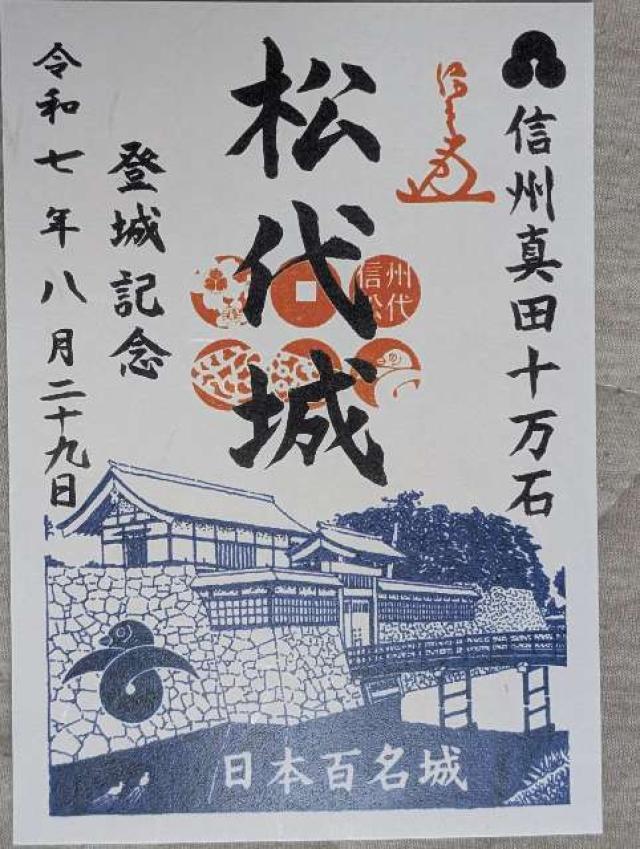 信州真田十万石
松代城
信州
松代
登城記念
令和七年八月二十九日
日本百名城